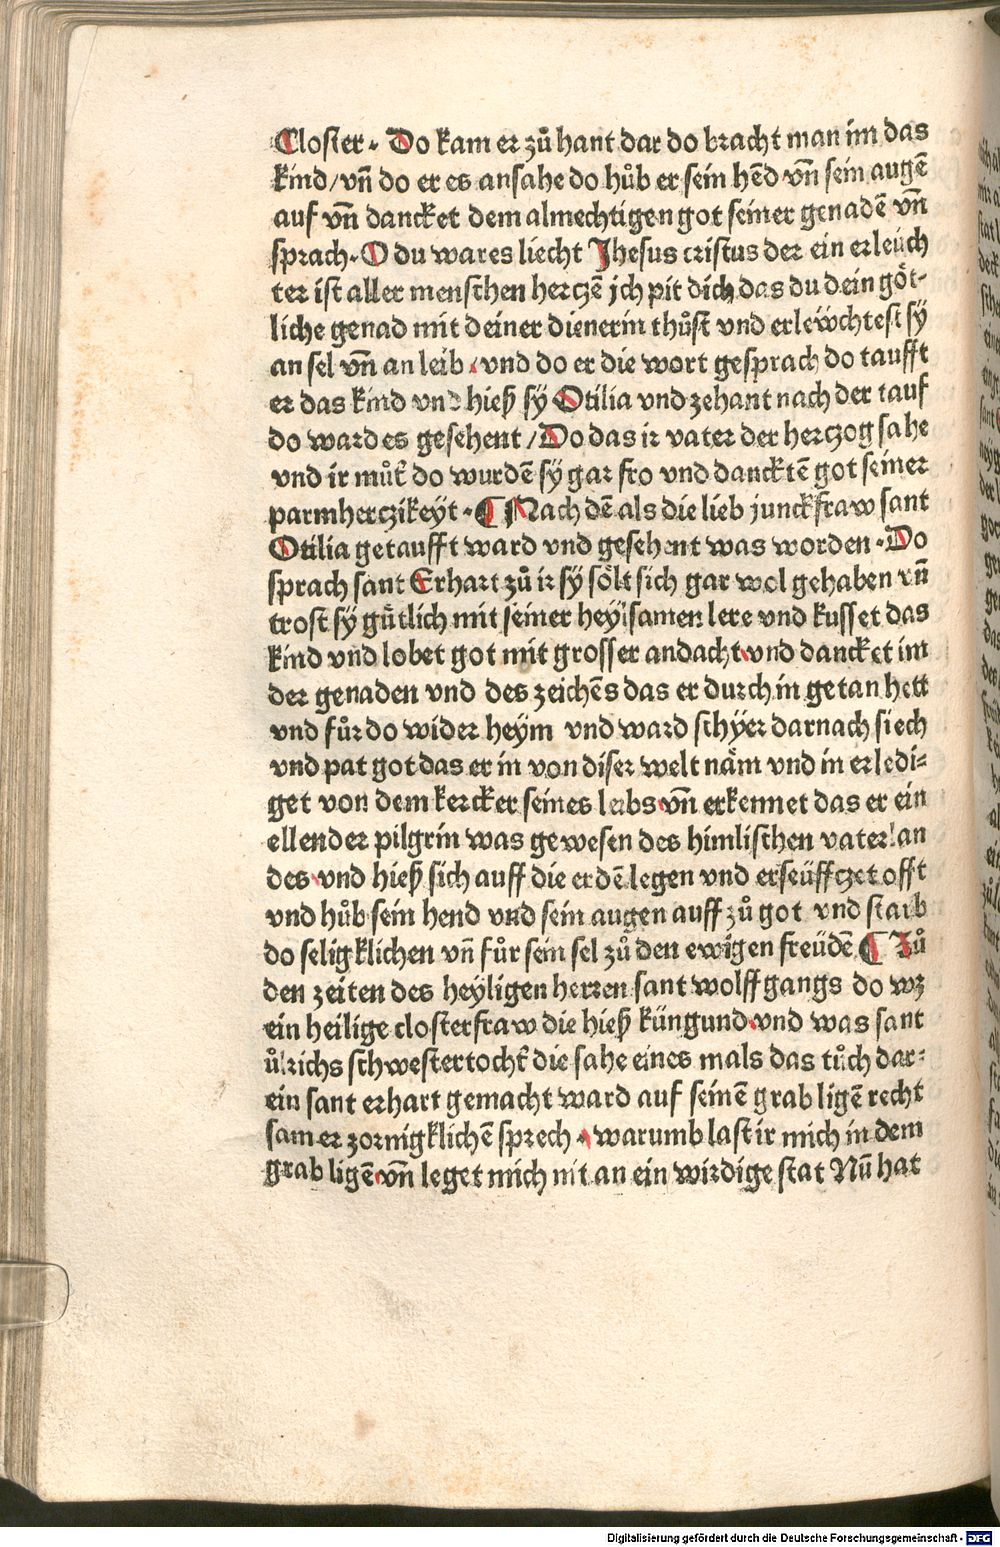 Closter. Do kam er zů hant dar do bracht man im das
kind/vn̄ do er es ansahe do hůb er sein hēd vn̄ sein augē
auf vn̄ dancket dem almechtigen got seiner genadē vn̄
sprach. O du wares liecht Jhesus cristus der ein erleüch
ter ist aller menschen hertzē jch pit dich das du dein göt-
liche genad mit deiner dienerin thůst vnd erlewchtest sÿ
an sel vn̄ an leib. vnd do er die wort gesprach do taufft
er das kind vnd hieß sy Otilia vnd zehant nach der tauf
do ward es gesehent/Do das ir vater der hertzog sahe
vnd ir můt̄ do wurdē sy gar fro vnd dancktē got seiner
parmhertzikeyt. ¶ Nach dē als die lieb junckfraw sant
Otilia getaufft ward vnd gesehent was worden. Do
sprach sant Erhart zů ir sy sölt sich gar wol gehaben vn̄
trost sy gütlich mit seiner heylsamen lere vnd kusset das
kind vnd lobet got mit grosser andacht. vnd dancket im
der genaden vnd des zeichēs das er durch in getan hett
vnd fůr do wider heym vnd ward schyer darnach siech
vnd pat got das er in von diser welt näm vnd in erledi-
get von dem kercker seines leibs. vn̄ erkennet das er ein
ellender pilgrin was gewesen des himlischen vaterlan
des. vnd hieß sich auff die erdē legen vnd erseüfftzet offt
vnd hůb sein hend vnd sein augen auff zů got vnd starb
do seligklichen vn̄ fůr sein sel zů den ewigen freüdē ¶ Zů
den zeiten des heyligen herren sant wolffgangs do wz
ein heilige closterfraw die hieß küngund. vnd was sant
ůlrichs schwestertocht̄ die sahe eines mals das tůch dar-
ein sant erhart gemacht ward auf seinē grab ligē recht
sam er zornigklichē sprech. warumb last ir mich in dem
grab ligē. vn̄ leget mich nit an ein wirdige stat Nū hat
Digitalisierung gefördert durch die Deutsche Forschungsgemeinschaft - DFG